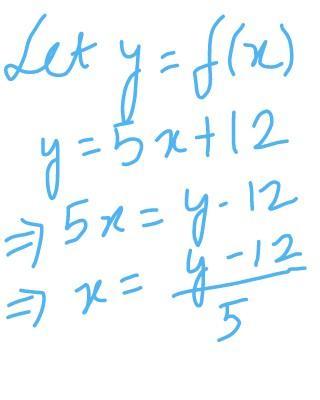 Let y = f(x)
y = 5x + 12
⇒ 5x = y - 12
⇒ x = (y - 12)/5